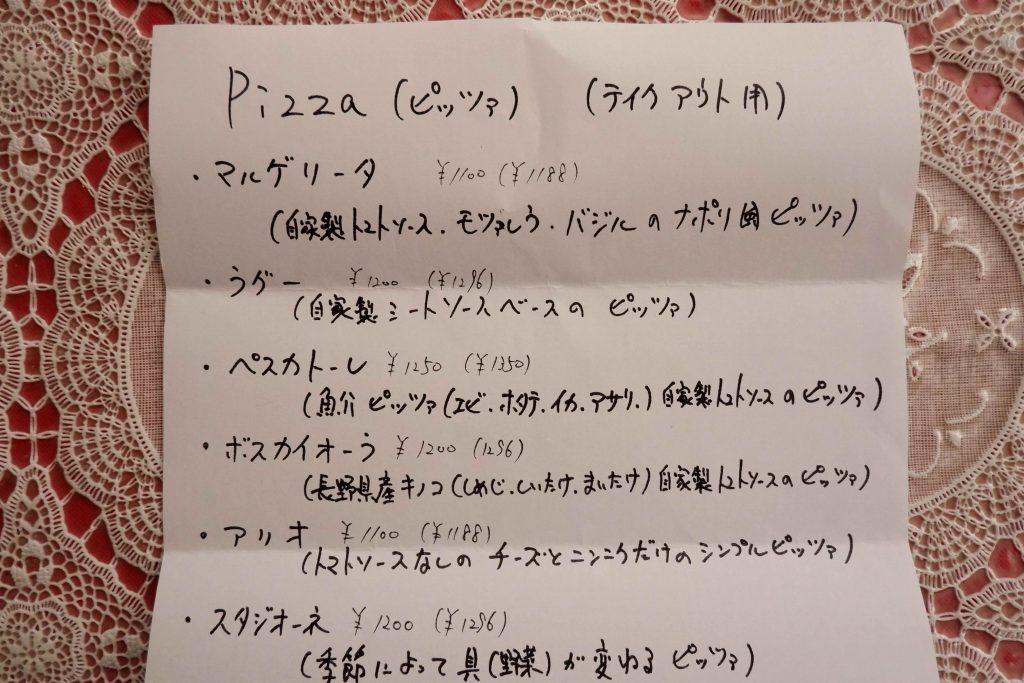 Pizza (ピッツァ) (テイクアウト用)
・マルゲリータ ¥1100 (¥1188)
(自家製トマトソース.モツァレラ.バジルのナポリ風ピッツァ)
・ラグー ¥1200 (¥1296)
(自家製ミートソースベースの ピッツァ)
・ペスカトーレ ¥1250 (¥1350)
(魚介ピッツァ(エビ.ホタテ.イカ.アサリ.)自家製トマトソースのピッツァ)
・ボスカイオーラ ¥1200 (1296)
(長野県産キノコ(しめじ.しいたけ.まいたけ)自家製トマトソースのピッツァ)
・アリオ ¥1100 (¥1188)
(トマトソースなしの チーズとニンニクだけのシンプルピッツァ)
・スタジオーネ ¥1200 (¥1296)
(季節によって具(野菜)が変わる ピッツァ)